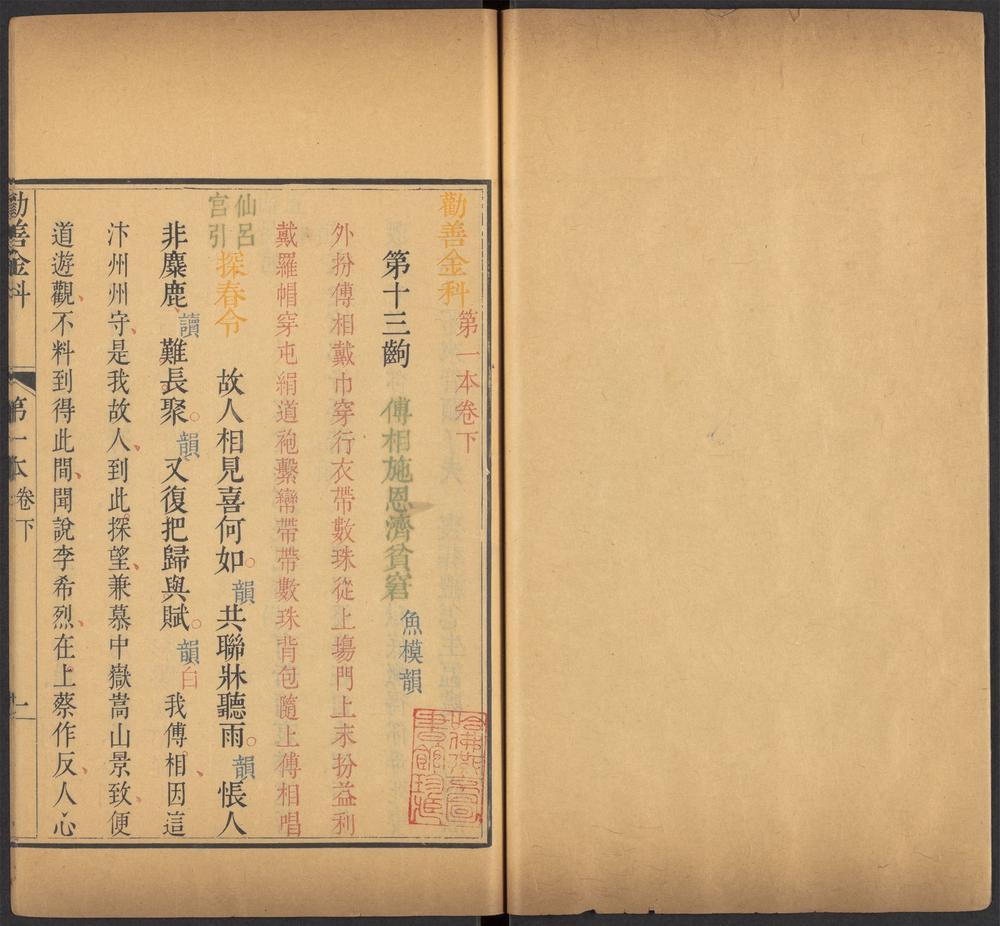 勸善金科第一本卷下
第十三齣 傅相施恩濟貧窘 魚模韻
外扮傅相戴巾穿行衣帶數珠從上場門上末扮益利
戴羅帽穿屯絹道袍繫鸞帶帶數珠背包隨上傅相唱
仙呂宮引 探春令 故人相見喜何如。韻 共聯牀聽雨。韻 悵人
非麋鹿、讀 難長聚。韻 又復把歸與賦。韻 白 我傅相、因這
汴州州守、是我故人、到此探望、兼慕中嶽嵩山景致、便
道遊觀、不料到得此間、聞說李希烈、在上蔡作反、人心
勸善金科 第一本卷下